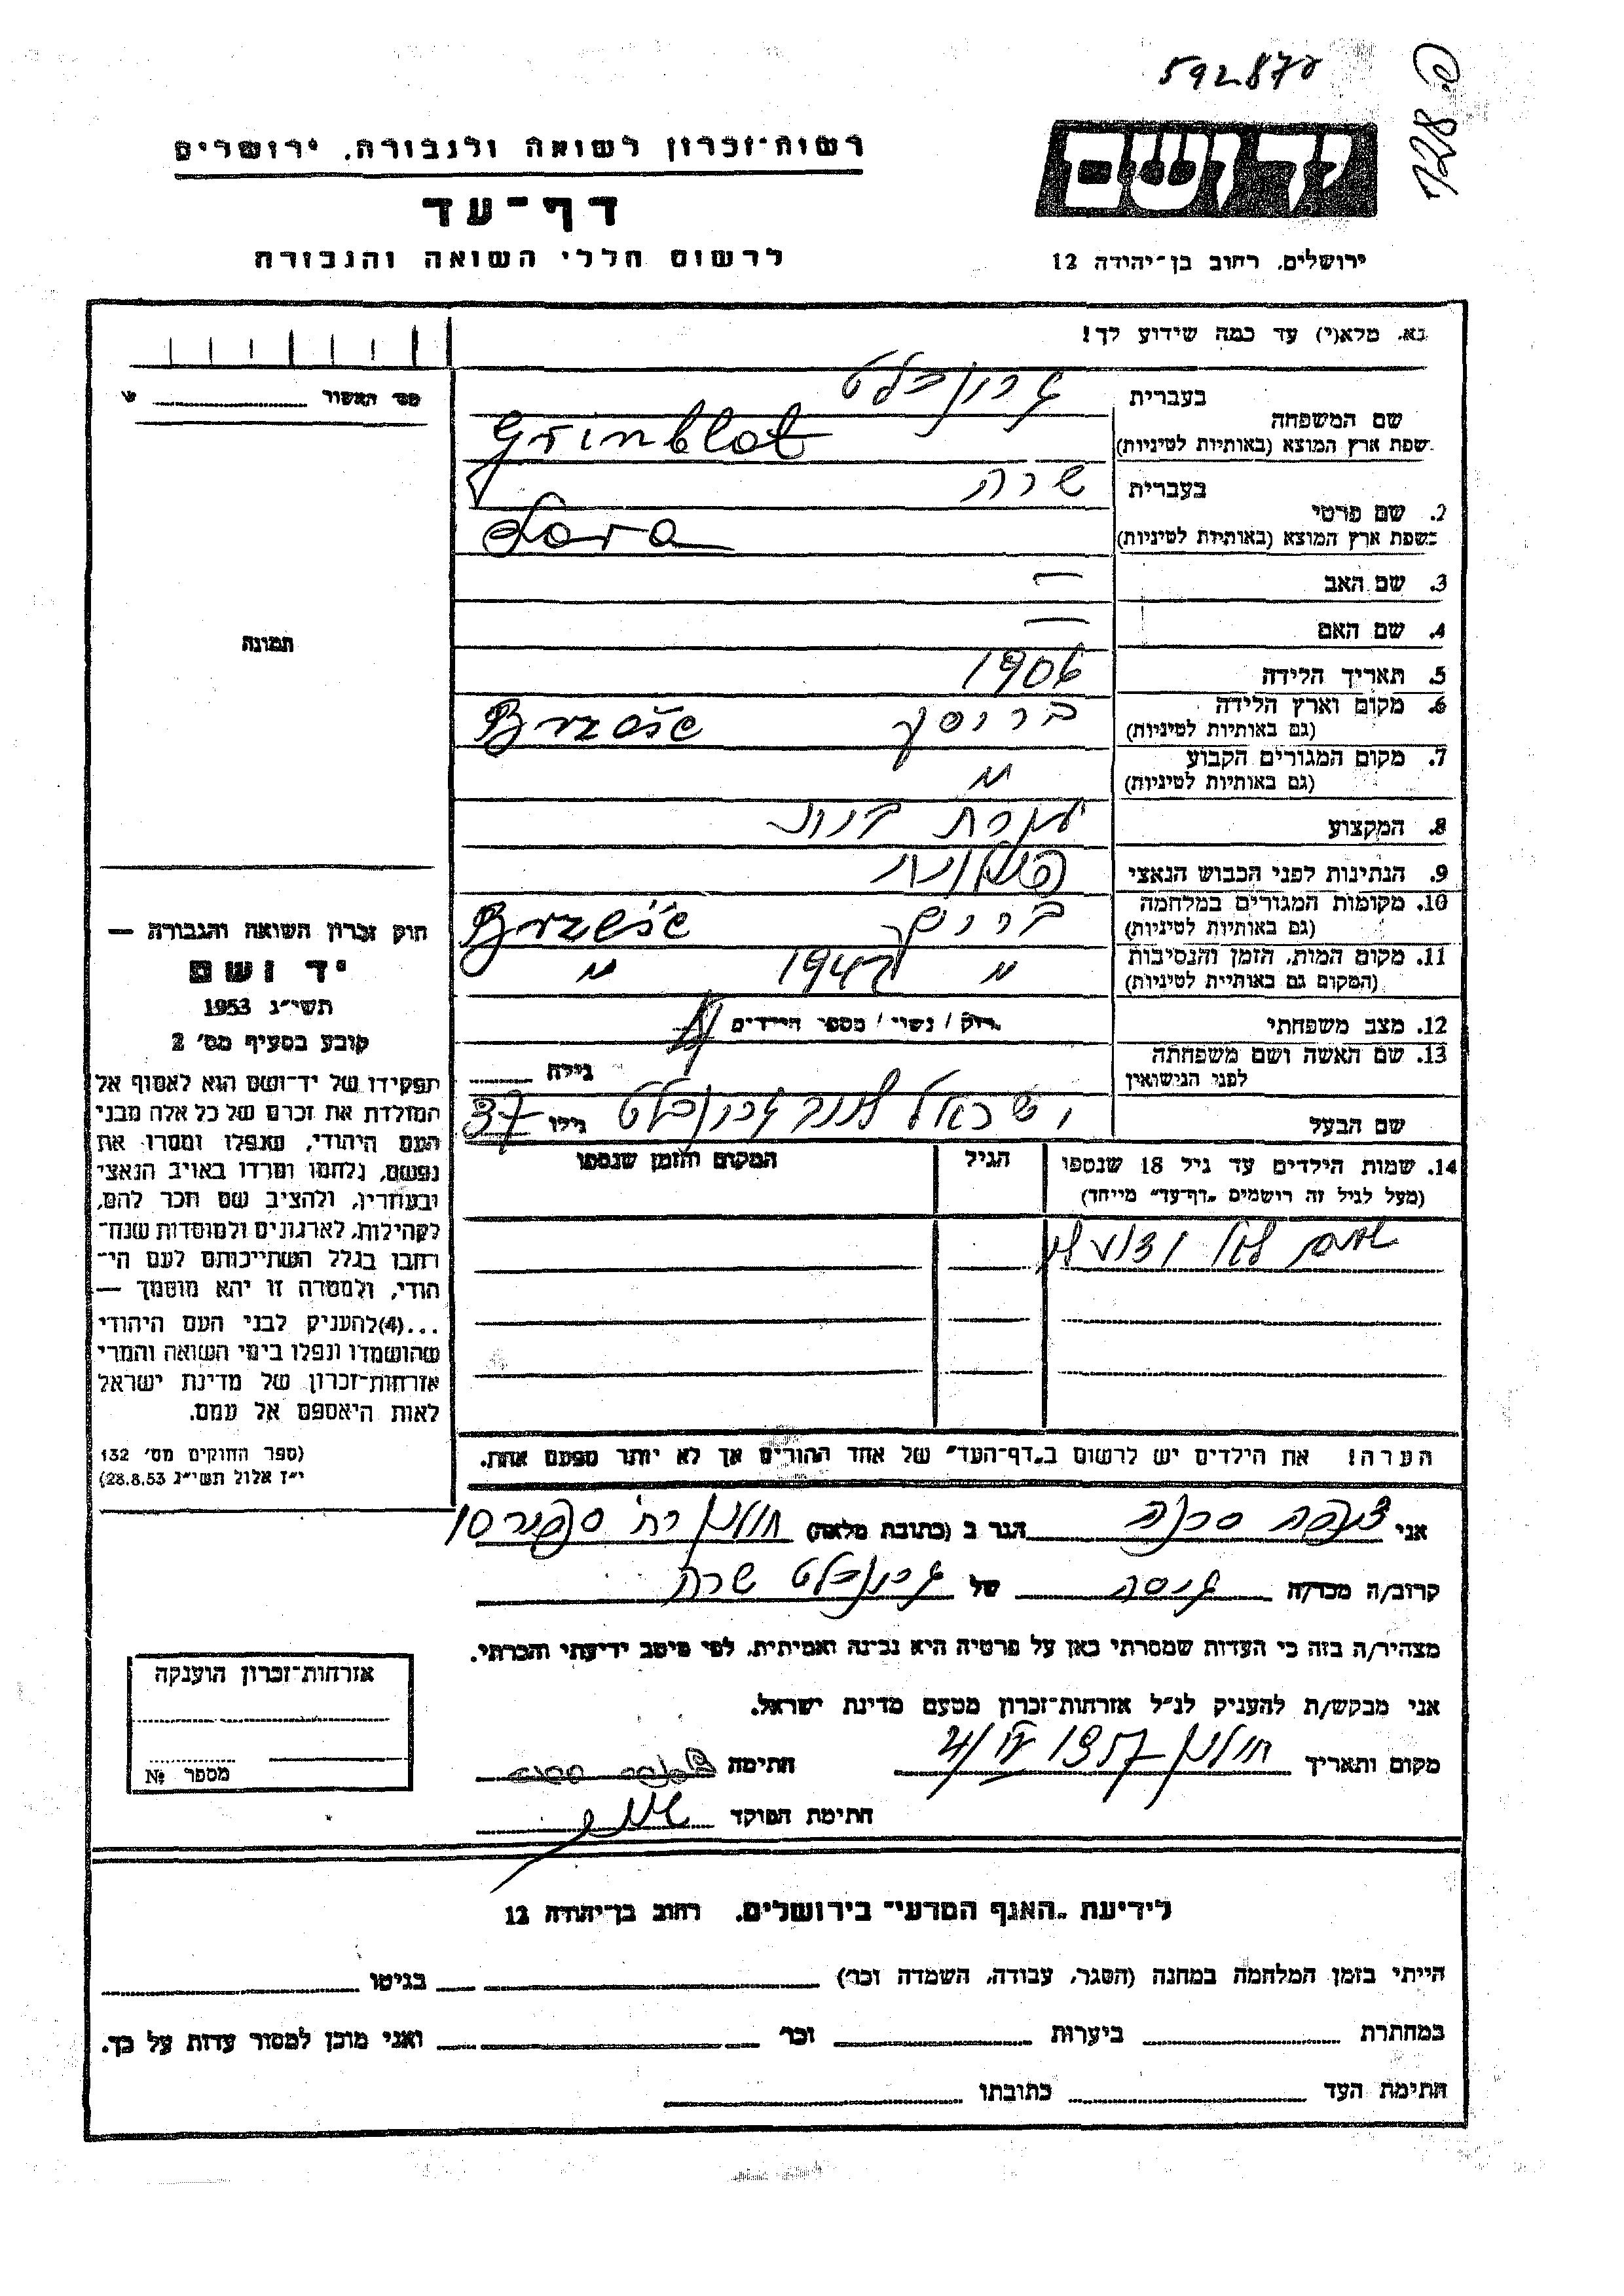 592872
728 פ.
רשות-זכרון לשואה ולגבורה, ירושלים
דף-עד
לרשום חללי השואה והגבורה
ידושם
ירושלים, רחוב בן-יהודה 12
נא, מלא(י) עד כמה שידוע לך!
מס' האשור
בעברית גרינבלט
שם המשפחה
בשפת ארץ המוצא (באותיות לטיניות) Grinblat
בעברית שרה
2. שם פרטי
בשפת ארץ המוצא (באותיות לטיניות) Sara
3. שם האב —
4. שם האם —
5. תאריך הלידה 1906
6. מקום וארץ הלידה
(גם באותיות לטיניות)
7. מקום המגורים הקבוע "
(גם באותיות לטיניות)
8. המקצוע
9. הנתינות לפני הכבוש הנאצי
10. מקומות המגורים במלחמה
(גם באותיות לטיניות)
11. מקום המות, הזמן והנסיבות " 1942 "
(המקום גם באותיות לטיניות)
12. מצב משפחתי רווק / נשוי / מספר הילדים
13. שם האשה ושם משפחתה
לפני הנישואין גילה
שם הבעל ישראל גרינבלט גילו 37
14. שמות הילדים עד גיל 18 שנספו הגיל המקום והזמן שנספו
(מעל לגיל זה רושמים "דף-עד" מיוחד)
הערה! את הילדים יש לרשום ב"דף-העד" של אחד ההורים אך לא יותר מפעם אחת.
תמונה
חוק זכרון השואה והגבורה —
יד ושם
תשי"ג 1953
קובע בסעיף מס' 2
תפקידו של יד-ושם הוא לאסוף אל
המולדת את זכרם של כל אלה מבני
העם היהודי, שנפלו ומסרו את
נפשם, נלחמו ומרדו באויב הנאצי
ובעוזריו, ולהציב שם וזכר להם,
לקהילות, לארגונים ולמוסדות שנח-
רבו בגלל השתייכותם לעם הי-
הודי, ולמטרה זו יהא מוסמך —
...(4) להעניק לבני העם היהודי
שהושמדו ונפלו בימי השואה והמרי
אזרחות-זכרון של מדינת ישראל
לאות היאספם אל עמם.
(ספר החוקים מס' 132
י"ז אלול תשי"ג 28.8.53)
אני הגר ב (כתובת מלאה) חולון רח' ספיר 10
קרוב/ה מכר/ה גיסה של גרינבלט שרה
מצהיר/ה בזה כי העדות שמסרתי כאן על פרטיה היא נכונה ואמיתית, לפי מיטב ידיעתי והכרתי.
אני מבקש/ת להעניק לנ"ל אזרחות-זכרון מטעם מדינת ישראל.
מקום ותאריך חולון 1957 חתימה
חתימת הפוקד
אזרחות-זכרון הוענקה
מספר №
לידיעת "האגף המדעי" בירושלים, רחוב בן-יהודה 12
הייתי בזמן המלחמה במחנה (הסגר, עבודה, השמדה וכו') בגיטו
במחתרת ביערות וכו' ואני מוכן למסור עדות על כך.
חתימת העד כתובתו